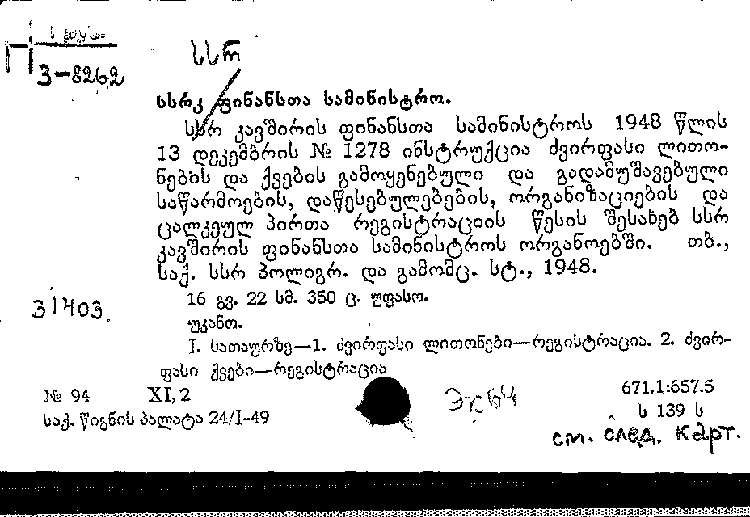 3-8262
სსრ
სსრკ ფინანსთა სამინისტრო.
სსრ კავშირის ფინანსთა სამინისტროს 1948 წლის
13 დეკემბრის № 1278 ინსტრუქცია ძვირფასი ლითო-
ნების და ქვების გამოყენებული და გადამუშავებული
საწარმოების, დაწესებულებების, ორგანიზაციების და
ცალკეულ პირთა რეგისტრაციის წესის შესახებ სსრ
კავშირის ფინანსთა სამინისტროს ორგანოებში. თბ.,
საქ. სსრ პოლიგრ. და გამომც. სტ., 1948.
16 გვ. 22 სმ. 350 ც. უფასო.
31403.
უკანო.
I. სათაურზე—1. ძვირფასი ლითონები—რეგისტრაცია. 2. ძვირ-
ფასი ქვები—რეგისტრაცია
№ 94 XI,2 671.1:657.5
საქ. წიგნის პალატა 24/I-49 ს 139 ს
см. след. карт.